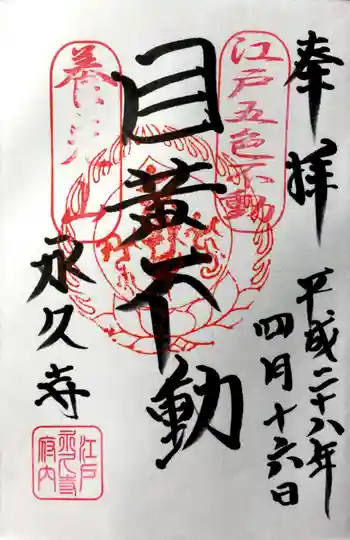 奉拝
平成二十八年
四月十六日
江戸五色不動
目黄不動
永久寺
江戸
永久寺
府内